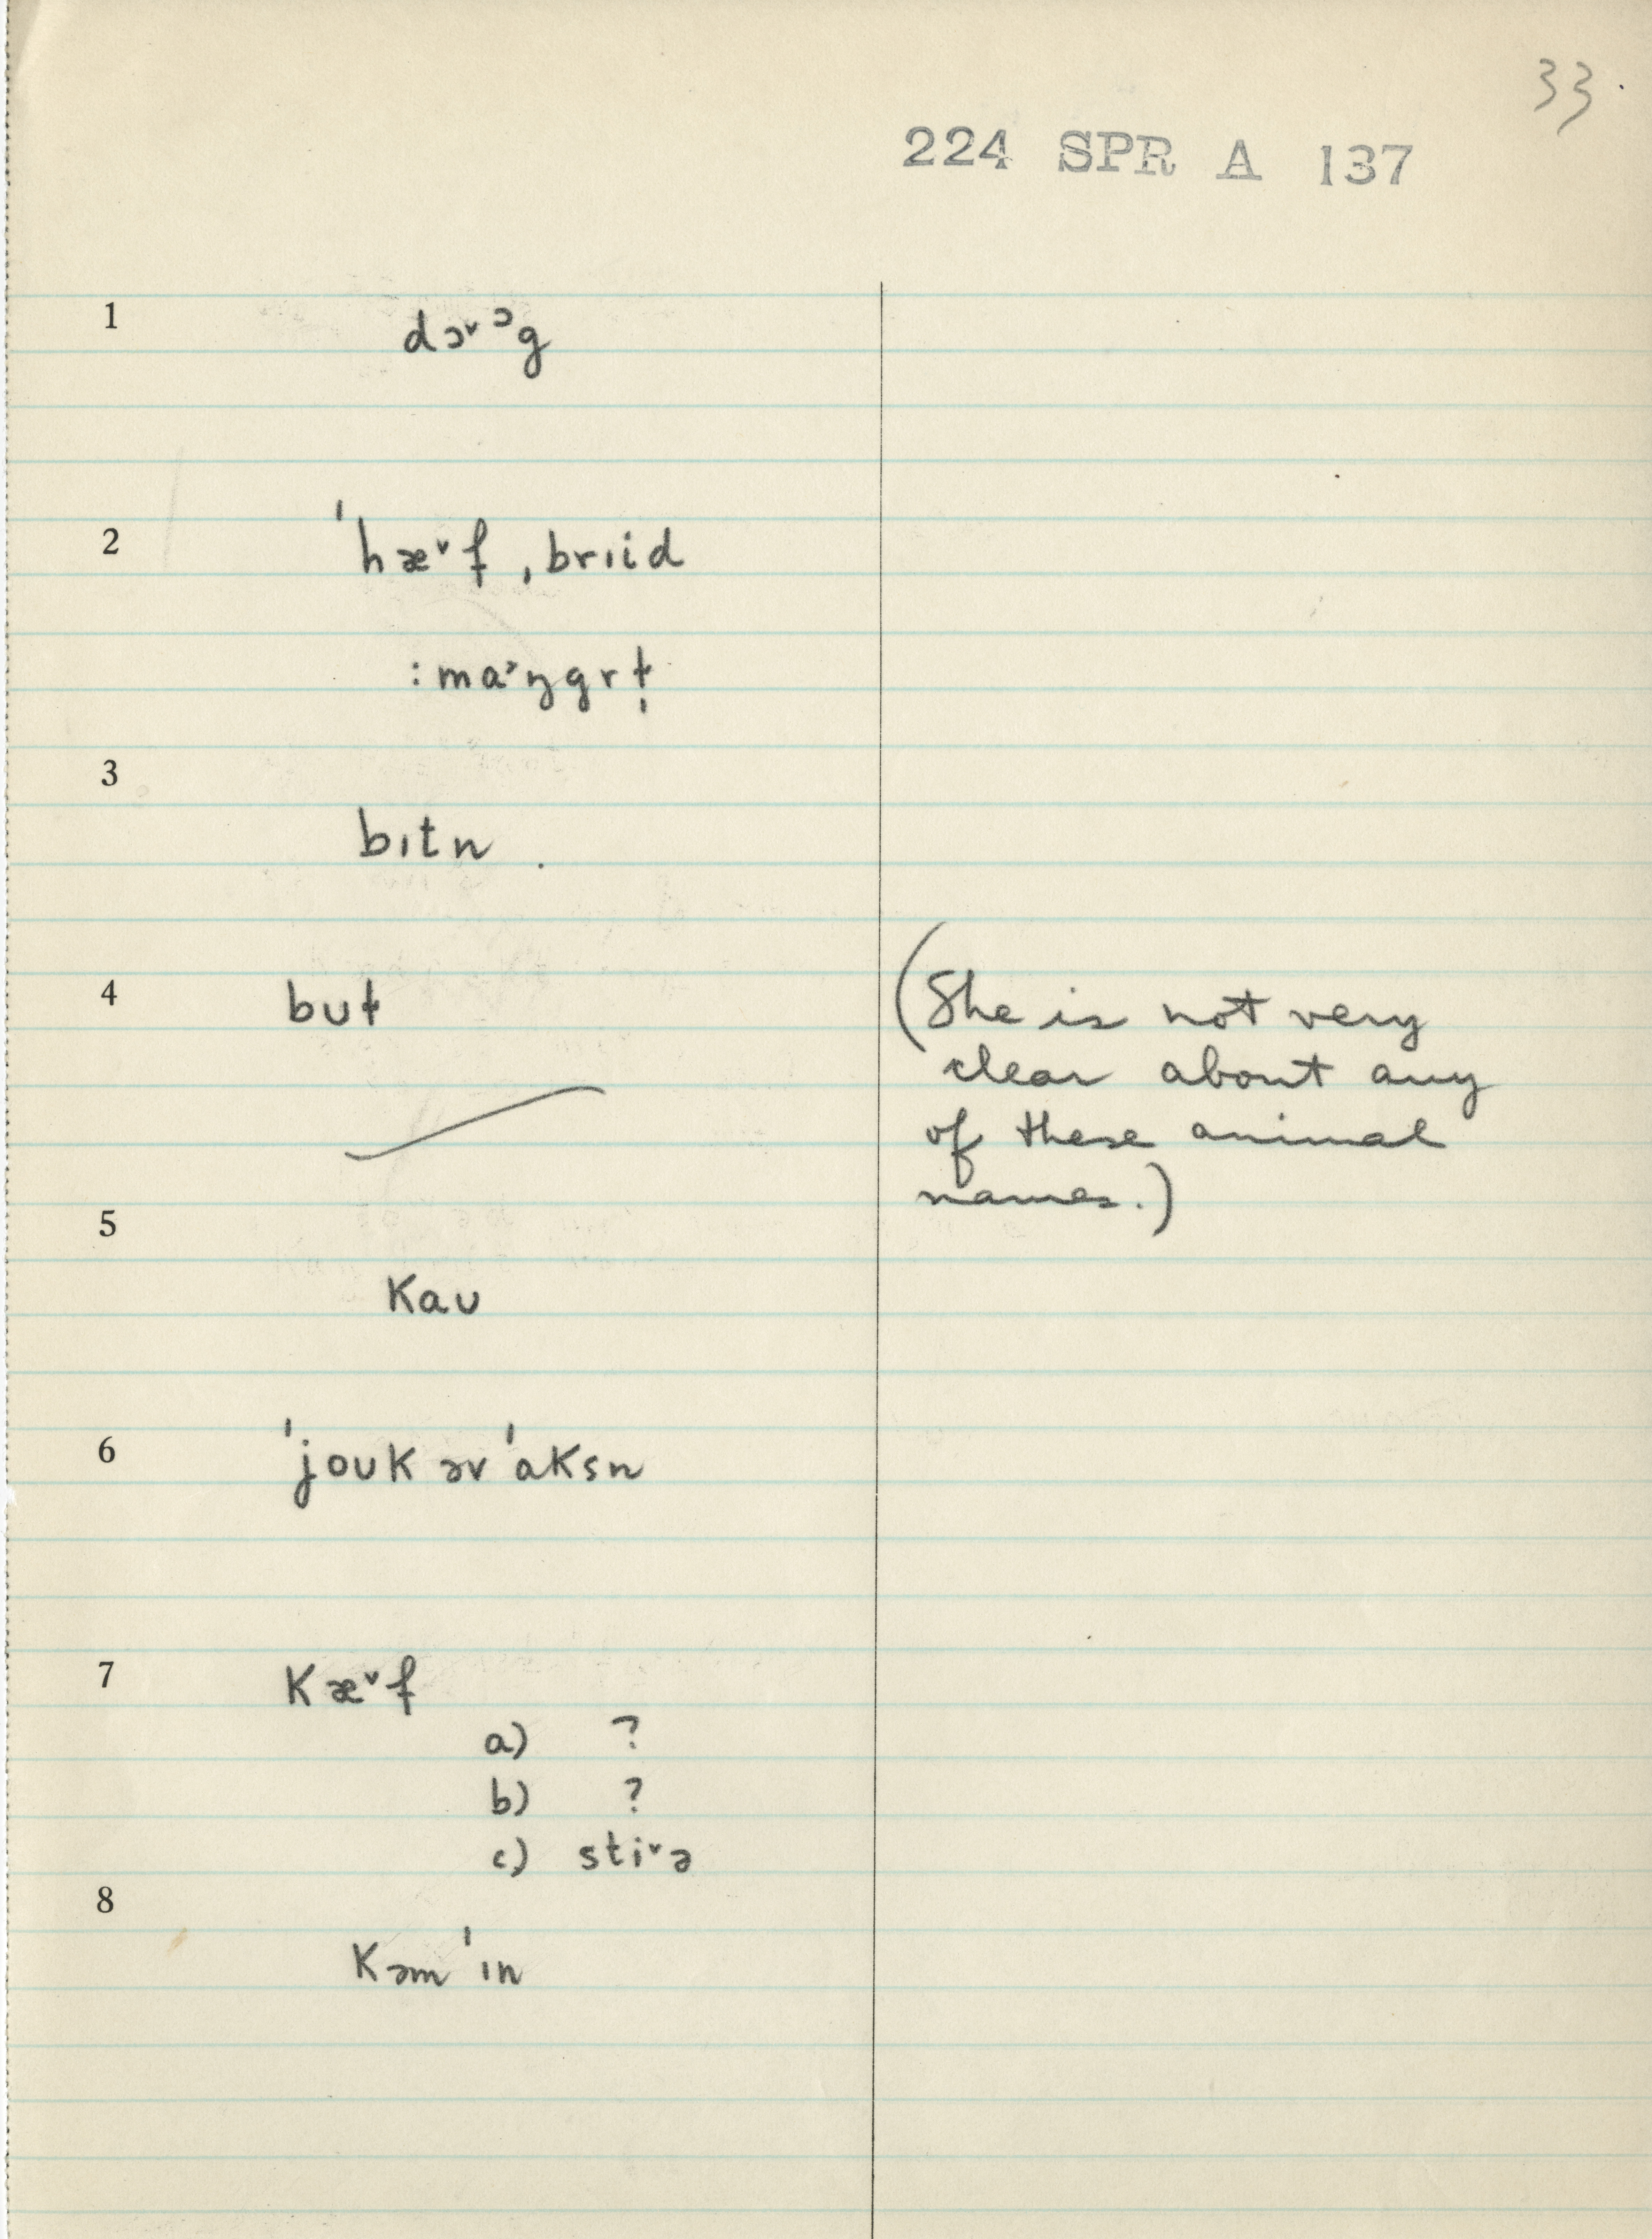 33
224 SPR A 137
1 dɔˇᵊg
2 ˈhæˇf ˌbrɪid
: maˀŋgrɫ̩
3
bɪtn
4 bʊɫ (She is not very
clear about any
of these animal
names.)
5
Kaʊ
6 ˈjoʊK əv ˈɑKsn
7 Kæˇf
a) ?
b) ?
c) stiˇə
8
Kəm ˈɪn